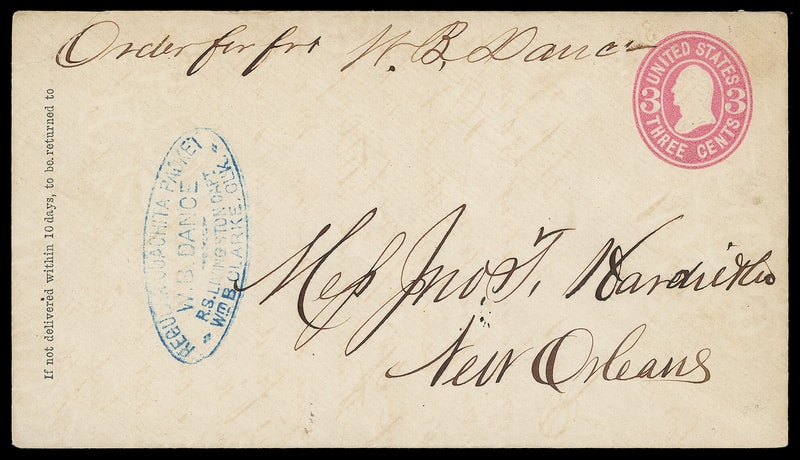 Order for frt W. B. Dance
UNITED STATES
3 3
THREE CENTS
If not delivered within 10 days, to be returned to
REGULAR OUACHITA PACKET
W. B. DANCE
R.S. LIVINGSTON CAPT.
Wm B. CLARKE, CLK.
Mess Jno. T. Hardie & Co
New Orleans